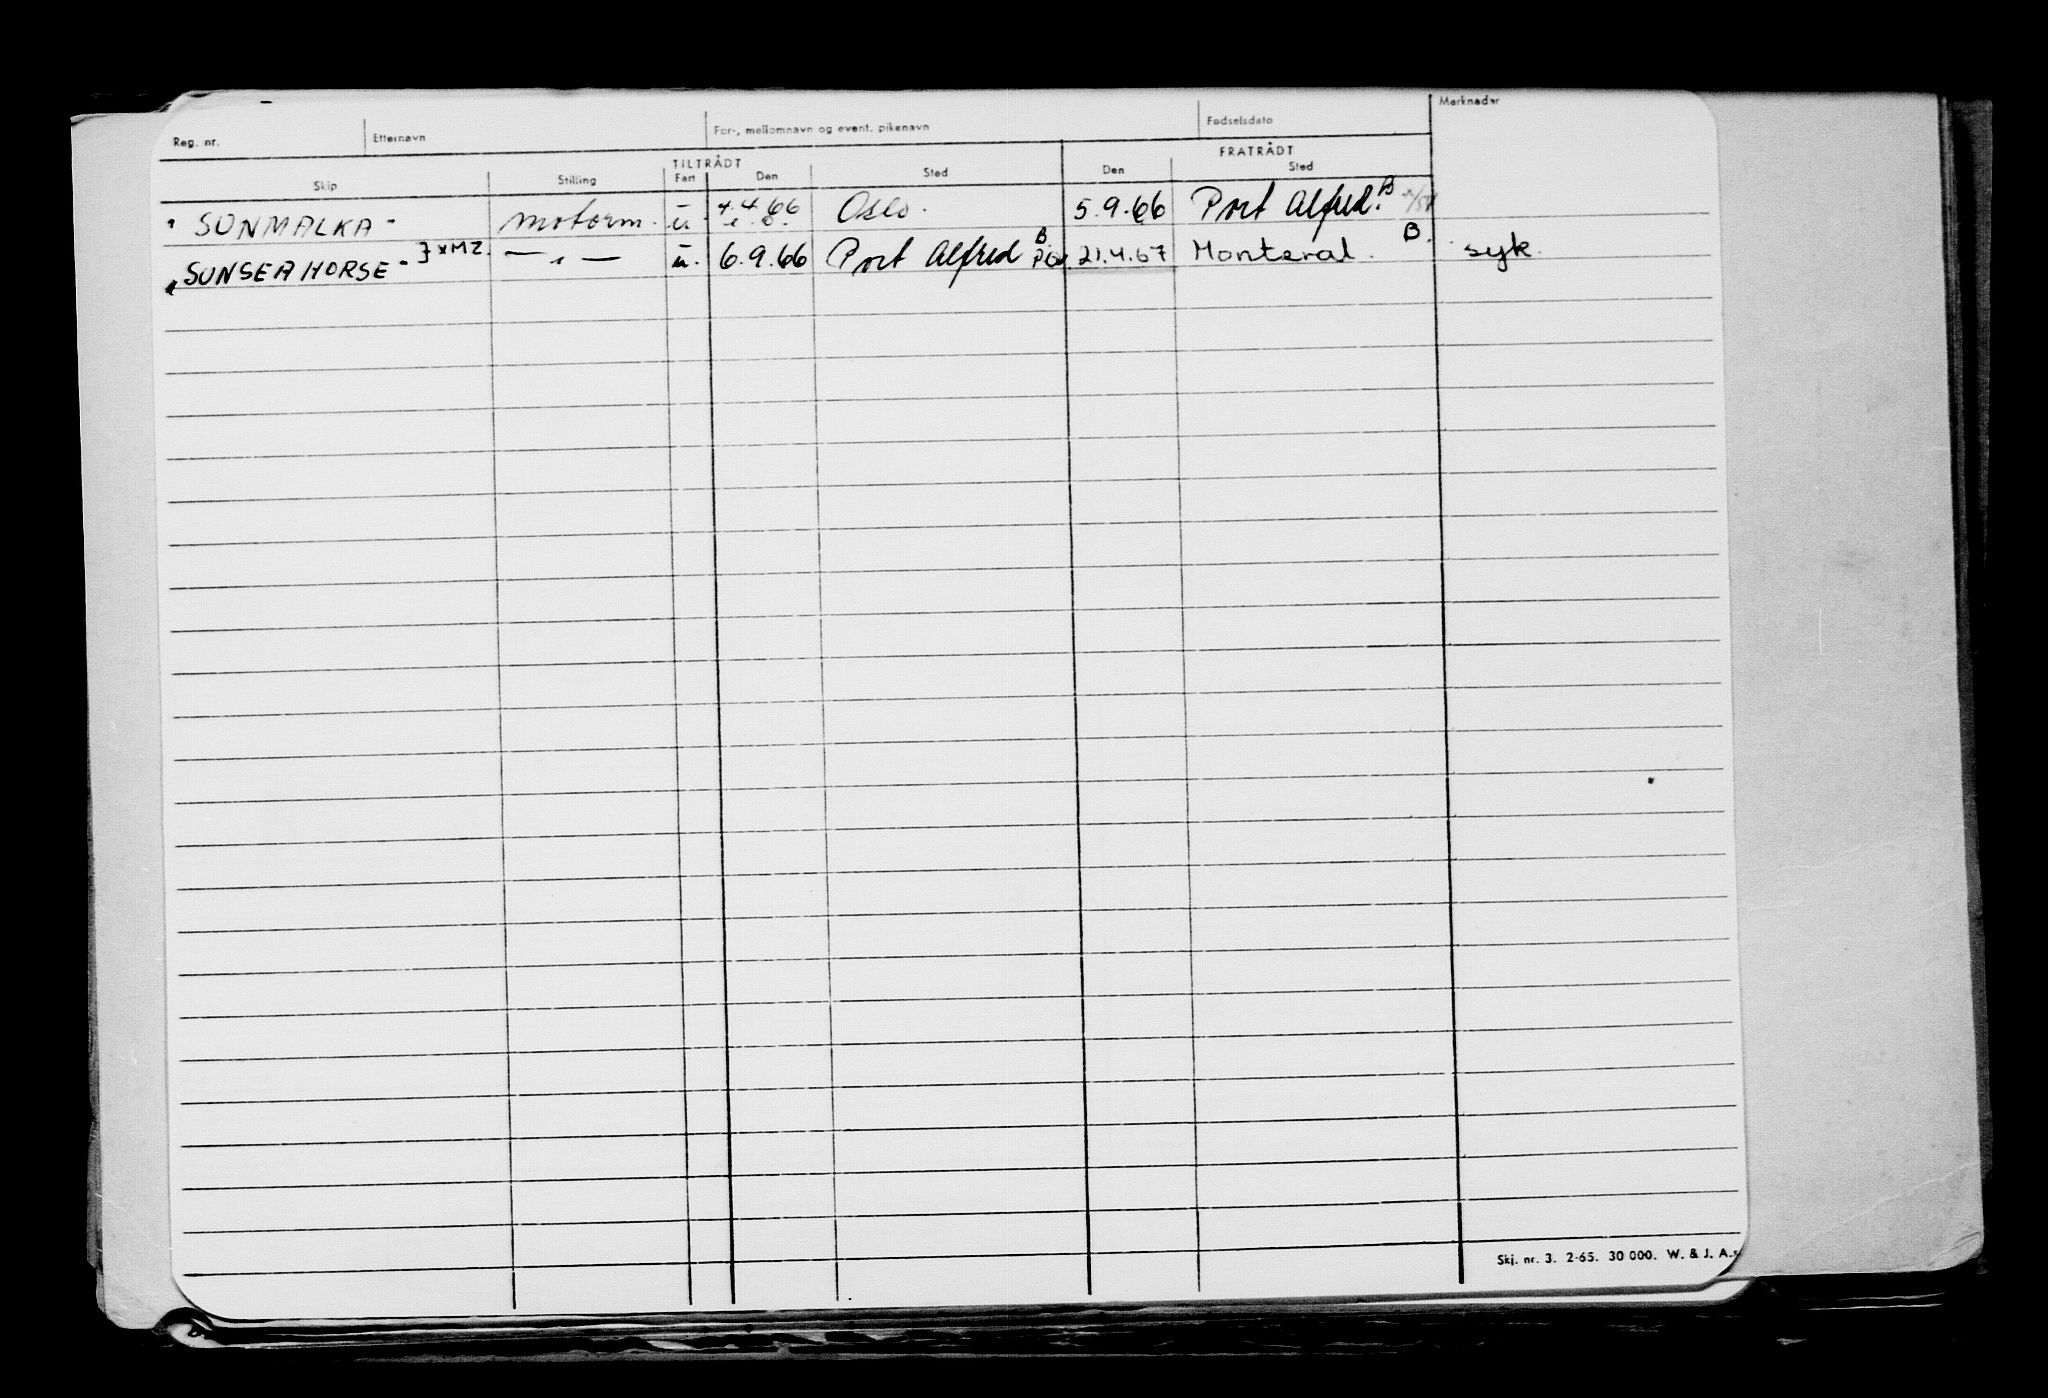 Reg. nr. Etternavn For-, mellomnavn og event. pikenavn Fødselsdato Merknader
TILTRÅDT FRATRÅDT
Skip Stilling Fart Den Sted Den Sted
"SUNMALKA" motorm. u. 4.4.66 Oslo. 5.9.66 Port Alfred. B
"SUNSEAHORSE" } x M2 — " — u. 6.9.66 Port Alfred B. 21.4.67 Monteral. B. syk.
Skj. nr. 3. 2-65. 30 000. W. & J. A.s